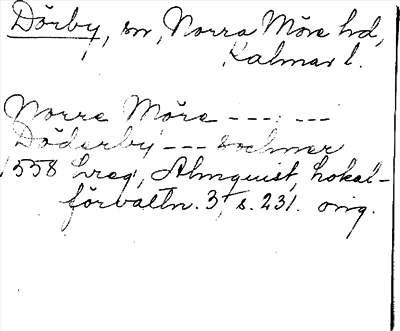 Dörby, sn, Norra Möre hd,
Kalmar l.
Norre Möre --- ---
Döderby --- sochner
1558 Lreg, Almquist, Lokal-
förvaltn. 3, s. 231. orig.